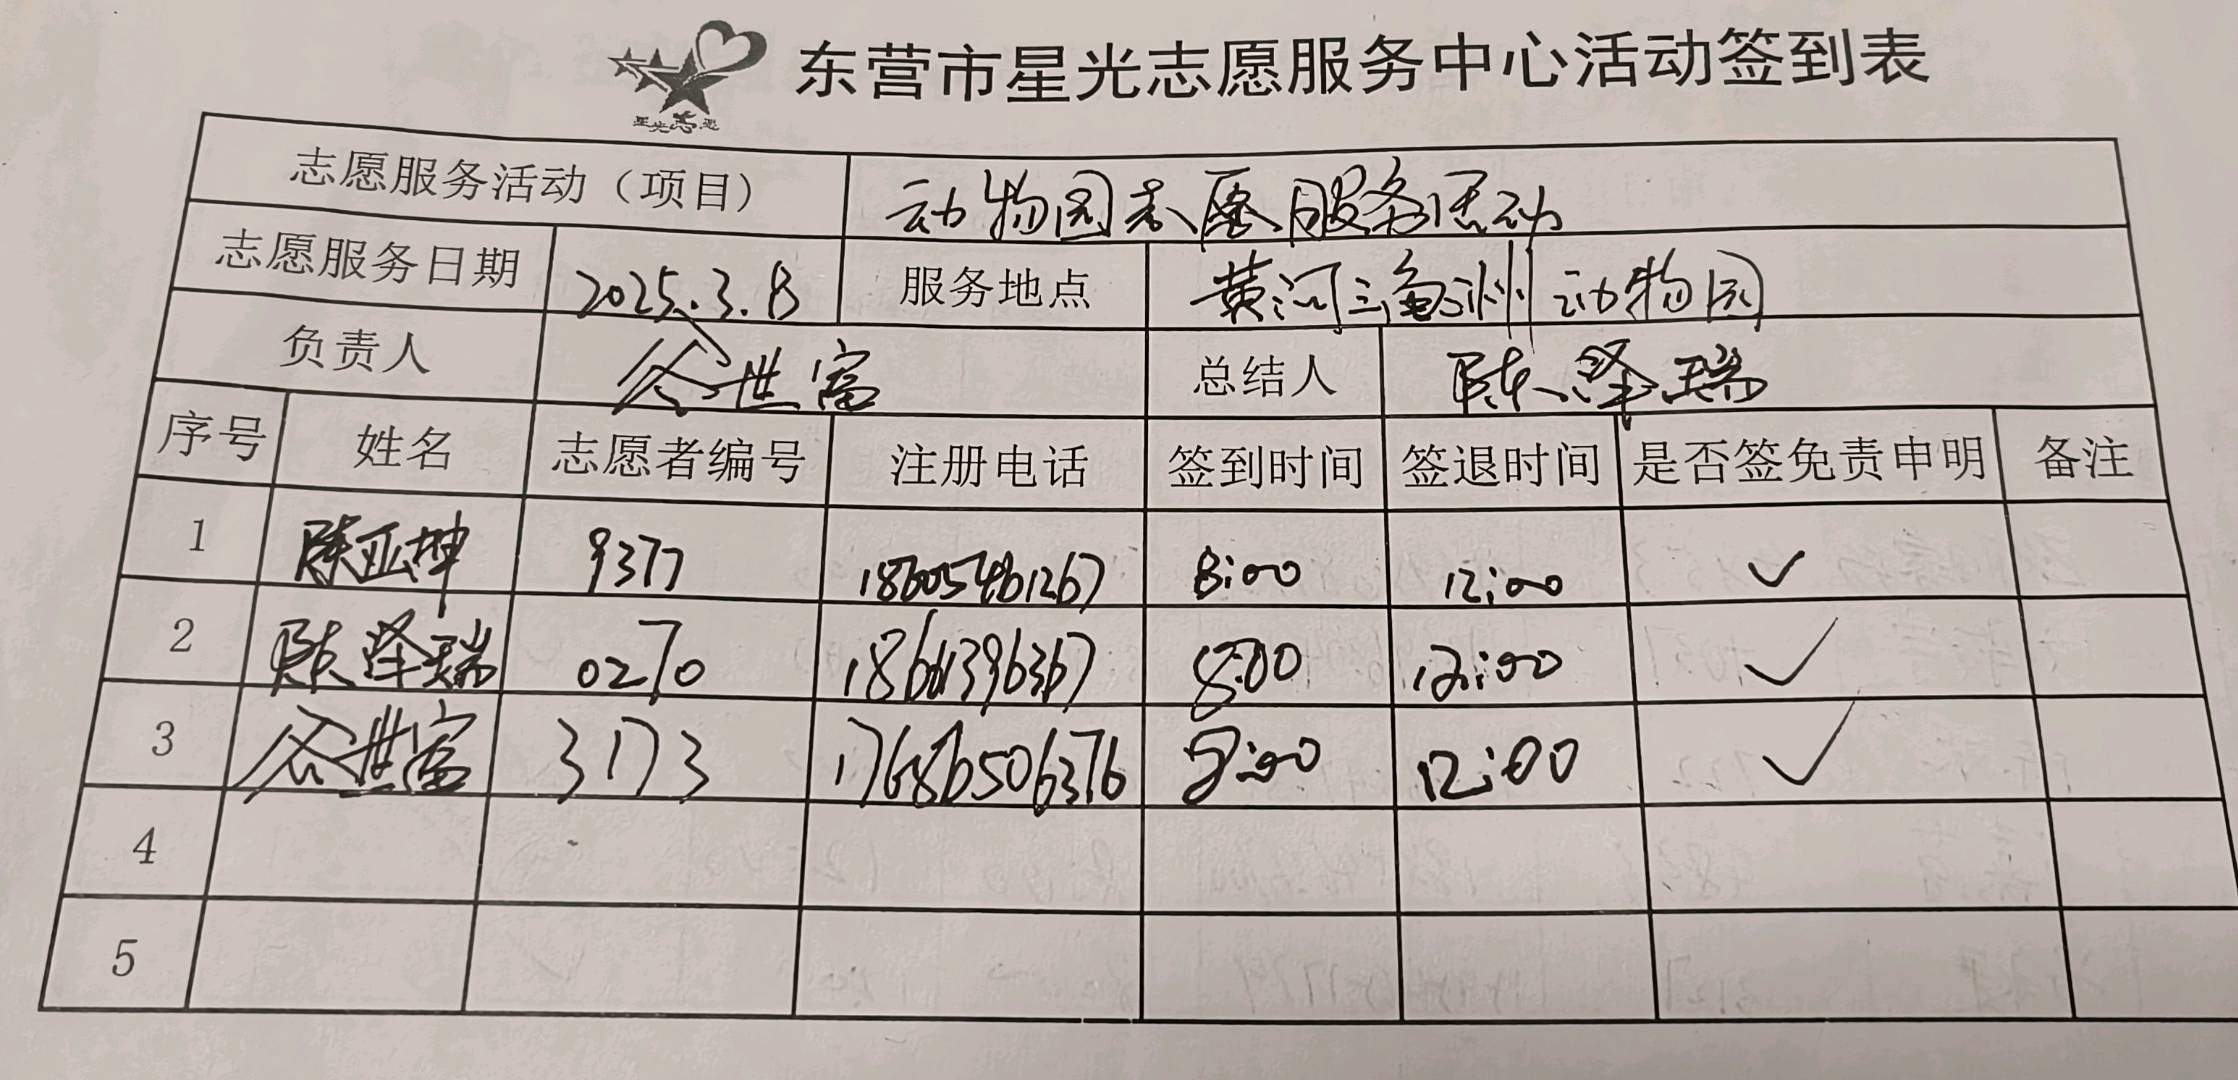 星光志愿
东营市星光志愿服务中心活动签到表
志愿服务活动（项目） 动物园志愿服务活动
志愿服务日期 2025.3.8 服务地点 黄河三角洲动物园
负责人 谷世富 总结人 陈泽瑞
序号 姓名 志愿者编号 注册电话 签到时间 签退时间 是否签免责申明 备注
1 陈亚坤 9377 18605461267 8:00 12:00 ✓
2 陈泽瑞 0270 8:00 12:00 ✓
3 谷世富 3173 17686506376 8:00 12:00 ✓
4
5